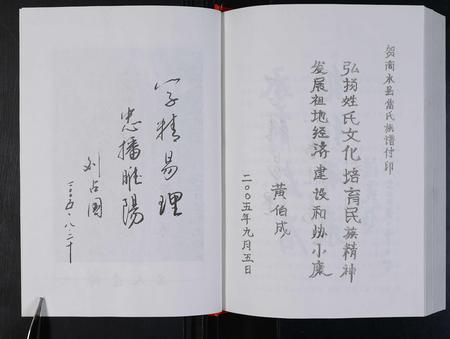 字精易理
忠播睢陽
刘占国
二〇〇五·八·二十
贺商水县雷氏族谱付印
弘扬姓氏文化培育民族精神
发展祖地经济建设和协小康
黄伯成
二〇〇五年九月五日